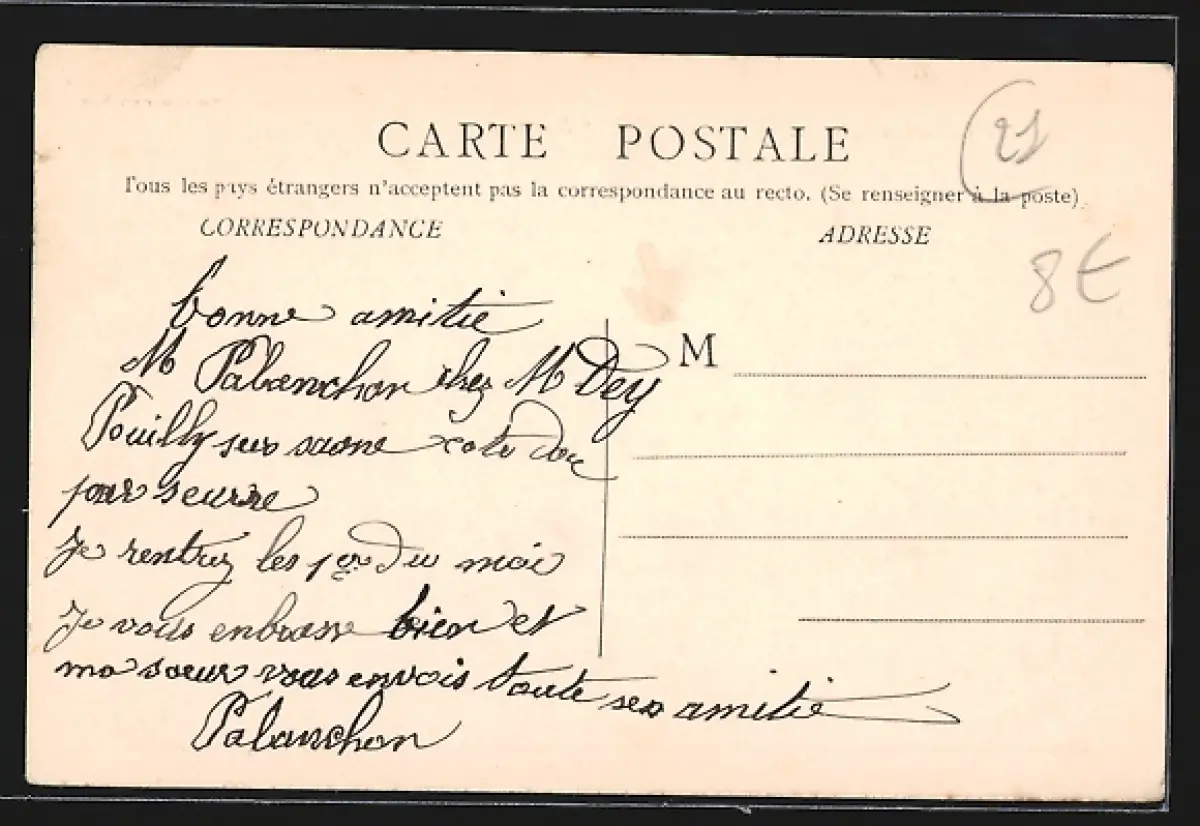 CARTE POSTALE
Tous les pays étrangers n'acceptent pas la correspondance au recto. (Se renseigner à la poste)
21
CORRESPONDANCE
ADRESSE
8€
bonne amitie
M Palanchon chez M Dey
M
Pouilly sur saone cote dor
par seurre
Je rentrez les 1er Du moi
Je vous enbrasse bien et
ma soeur vous envois toute ses amitie
Palanchon